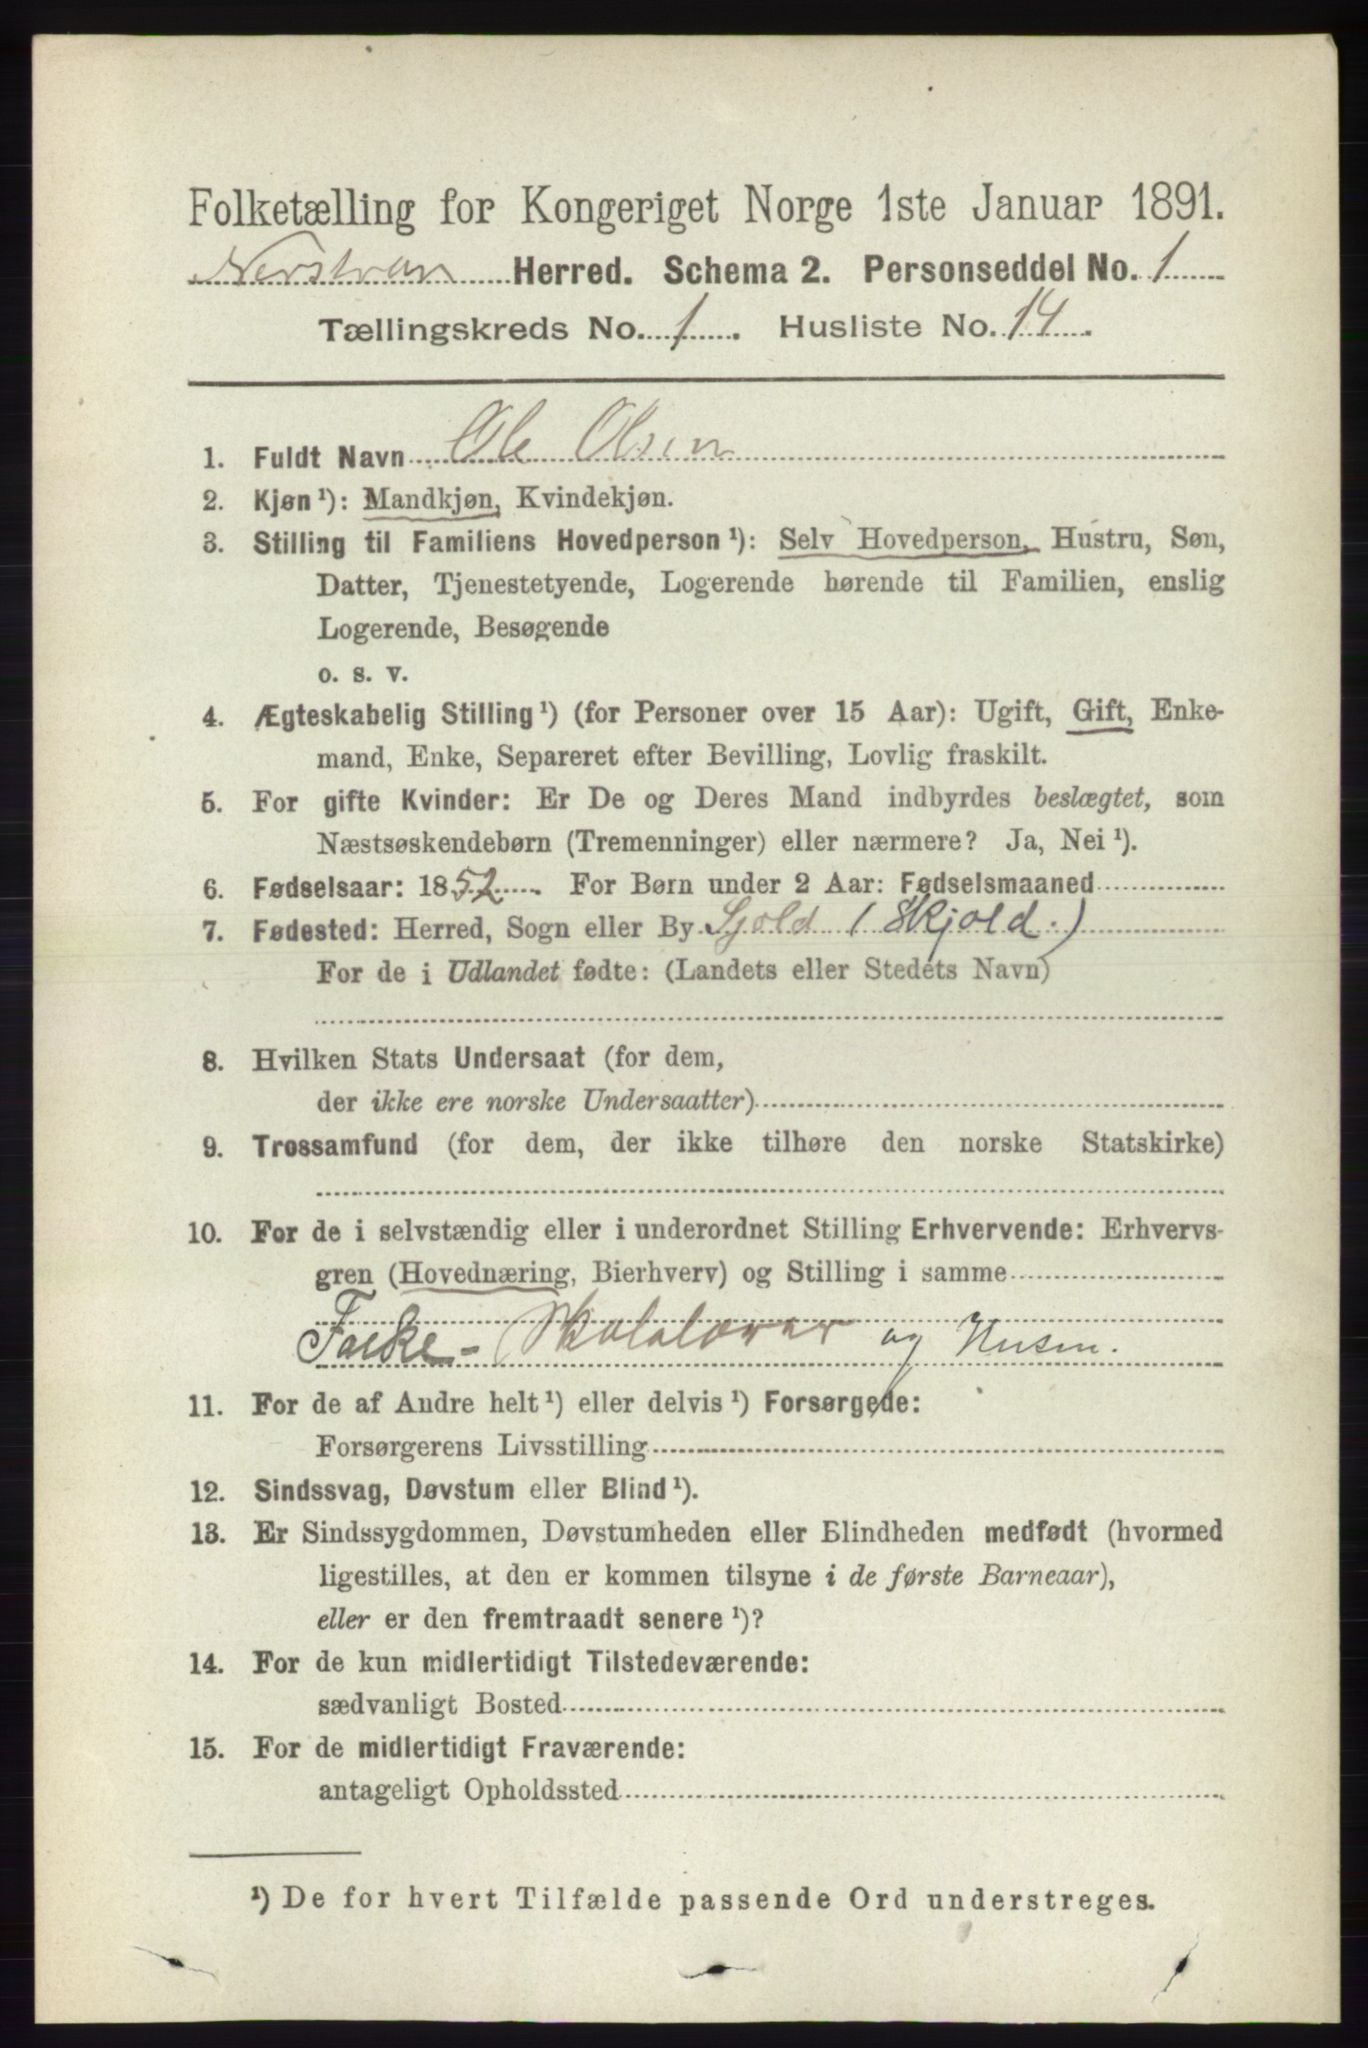 Folketælling for Kongeriget Norge 1ste Januar 1891.
Nerstran Herred. Schema 2. Personseddel No. 1
Tællingskreds No. 1. Husliste No. 14.
1. Fuldt Navn Ole Olsen
2. Kjøn ¹): Mandkjøn, Kvindekjøn.
3. Stilling til Familiens Hovedperson ¹): Selv Hovedperson, Hustru, Søn,
Datter, Tjenestetyende, Logerende hørende til Familien, enslig
Logerende, Besøgende
o. s. v.
4. Ægteskabelig Stilling ¹) (for Personer over 15 Aar): Ugift, Gift, Enke-
mand, Enke, Separeret efter Bevilling, Lovlig fraskilt.
5. For gifte Kvinder: Er De og Deres Mand indbyrdes beslægtet, som
Næstsøskendebørn (Tremenninger) eller nærmere? Ja, Nei ¹).
6. Fødselsaar: 1852. For Børn under 2 Aar: Fødselsmaaned
7. Fødested: Herred, Sogn eller By Sjold (Skjold.)
For de i Udlandet fødte: (Landets eller Stedets Navn)
8. Hvilken Stats Undersaat (for dem,
der ikke ere norske Undersaatter)
9. Trossamfund (for dem, der ikke tilhøre den norske Statskirke)
10. For de i selvstændig eller i underordnet Stilling Erhvervende: Erhvervs-
gren (Hovednæring, Bierhverv) og Stilling i samme
Skolelærer og Husm.
11. For de af Andre helt ¹) eller delvis ¹) Forsørgede:
Forsørgerens Livsstilling
12. Sindssvag, Døvstum eller Blind ¹).
13. Er Sindssygdommen, Døvstumheden eller Blindheden medfødt (hvormed
ligestilles, at den er kommen tilsyne i de første Barneaar),
eller er den fremtraadt senere ¹)?
14. For de kun midlertidigt Tilstedeværende:
sædvanligt Bosted
15. For de midlertidigt Fraværende:
antageligt Opholdssted
¹) De for hvert Tilfælde passende Ord understreges.